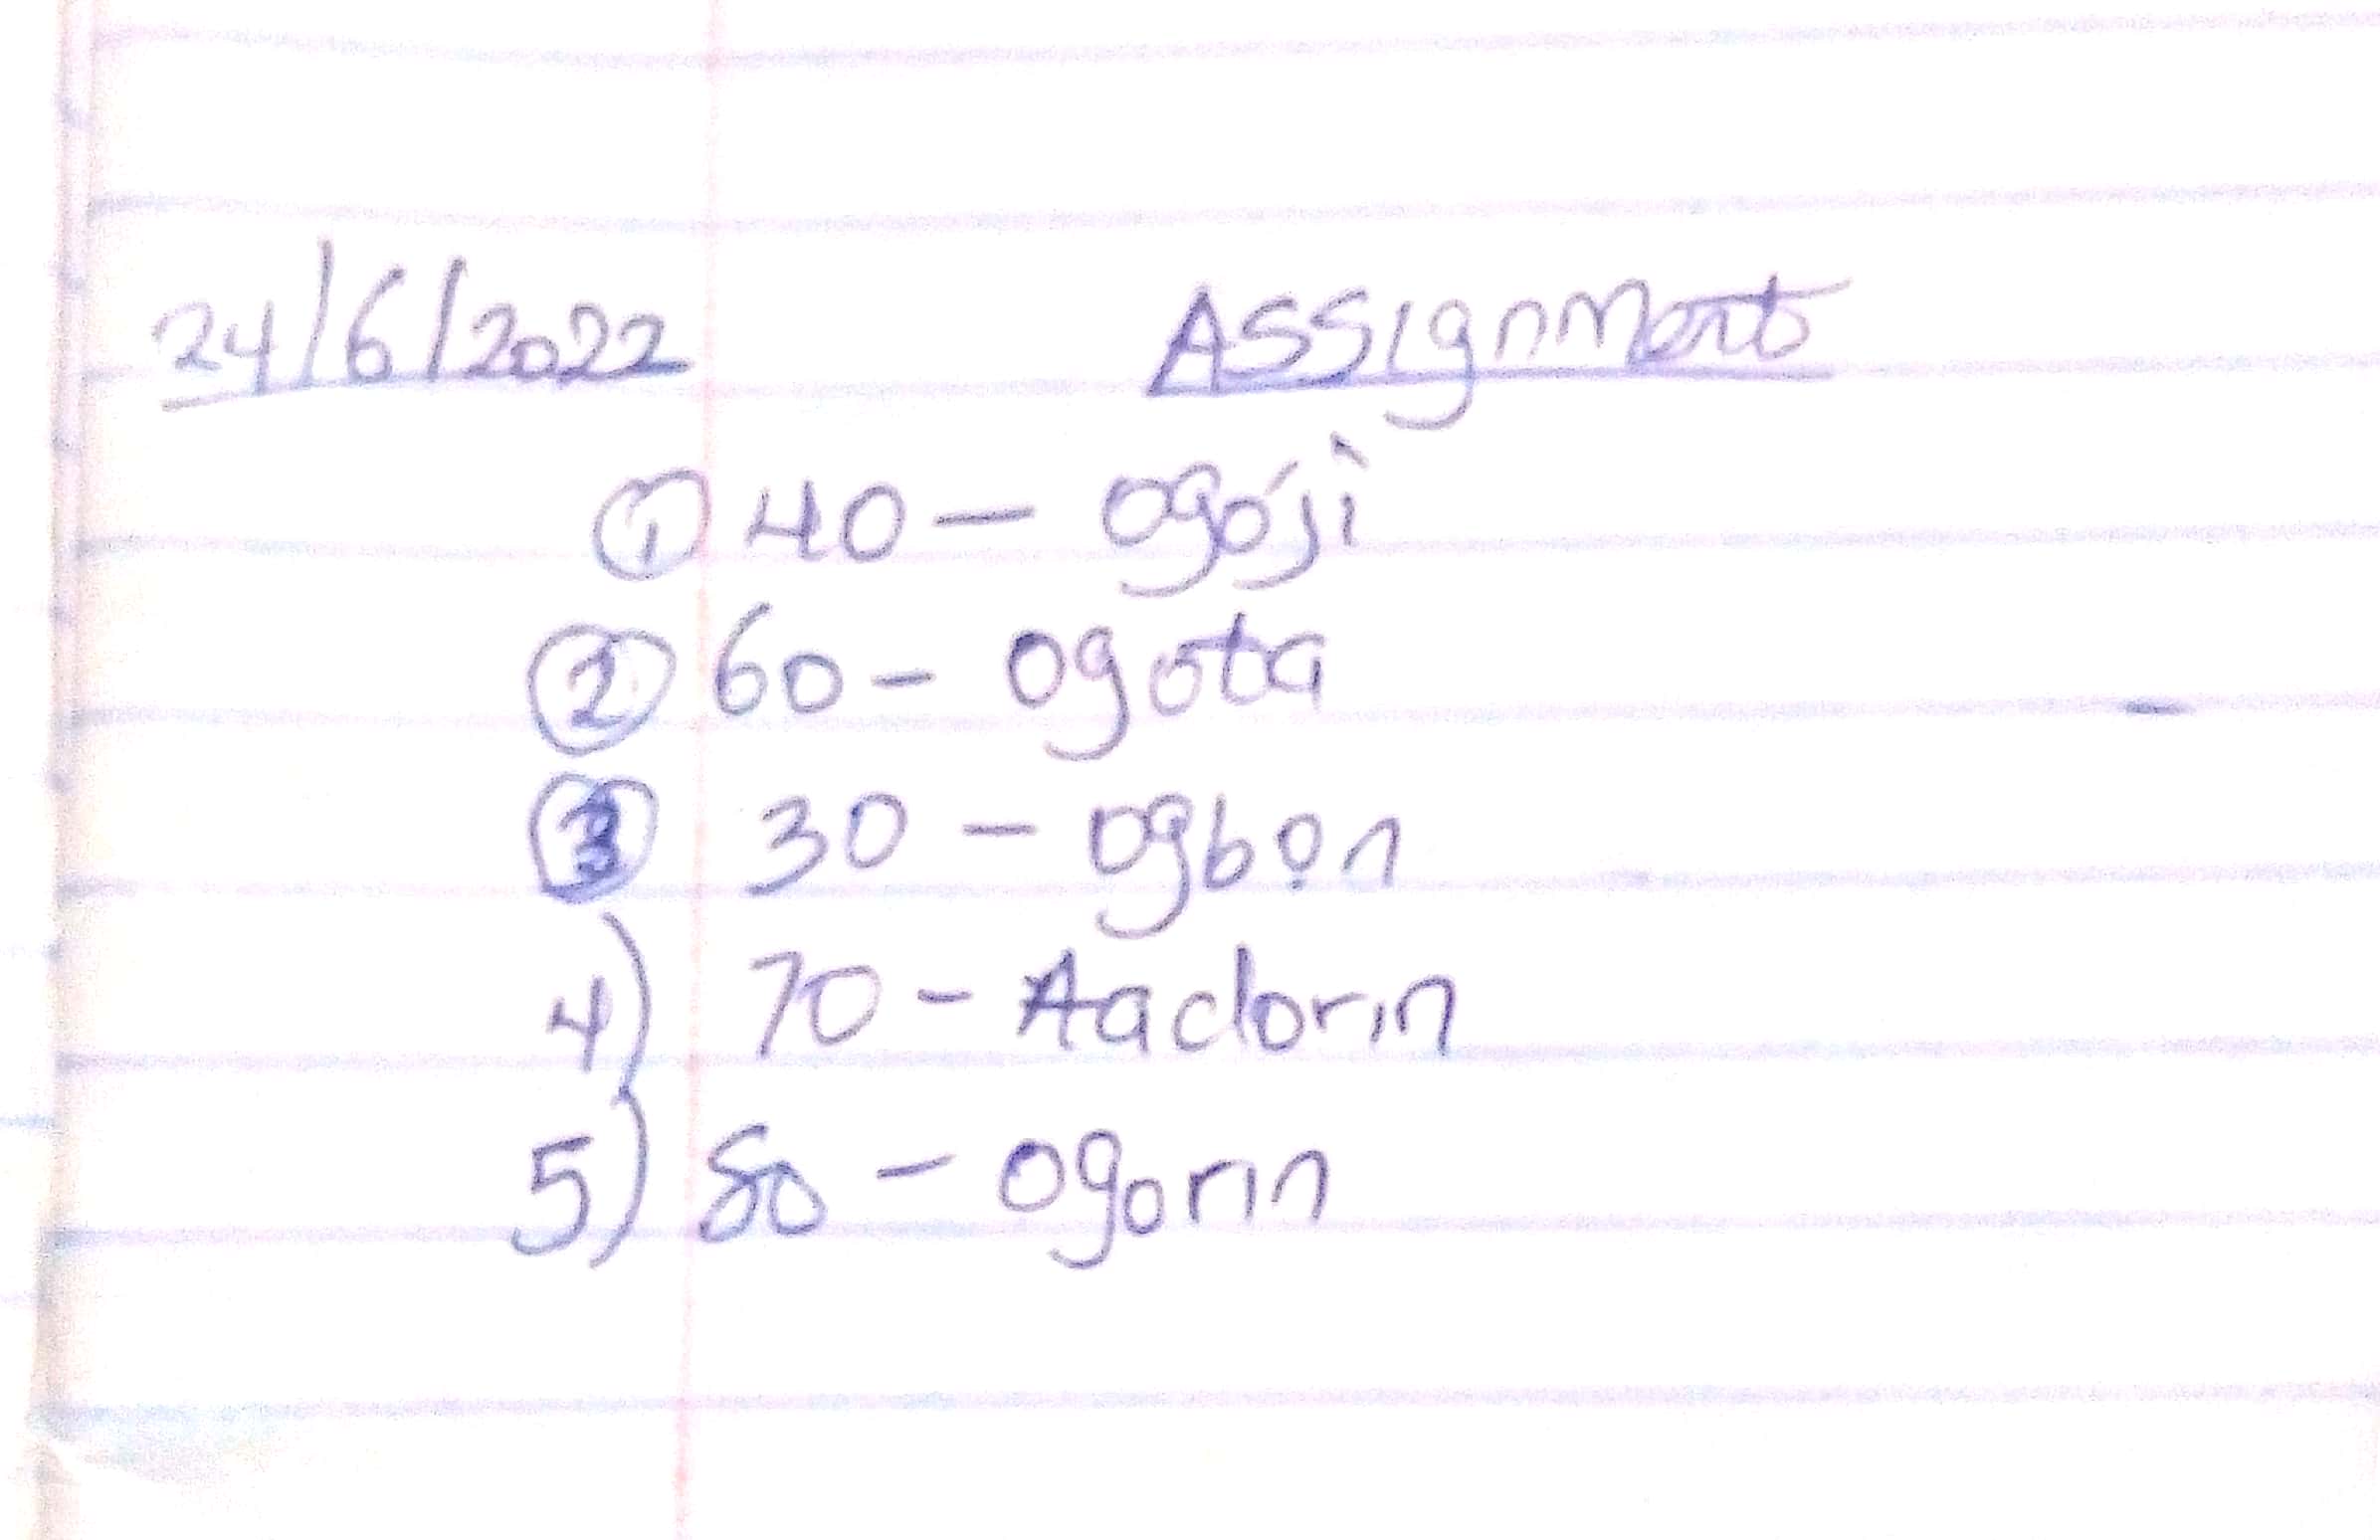 24/6/2022 Assignment
① 40 - ogójì
② 60 - ogota
③ 30 - ogbọn
4) 70 - Aadorin
5) 80 - ogorin